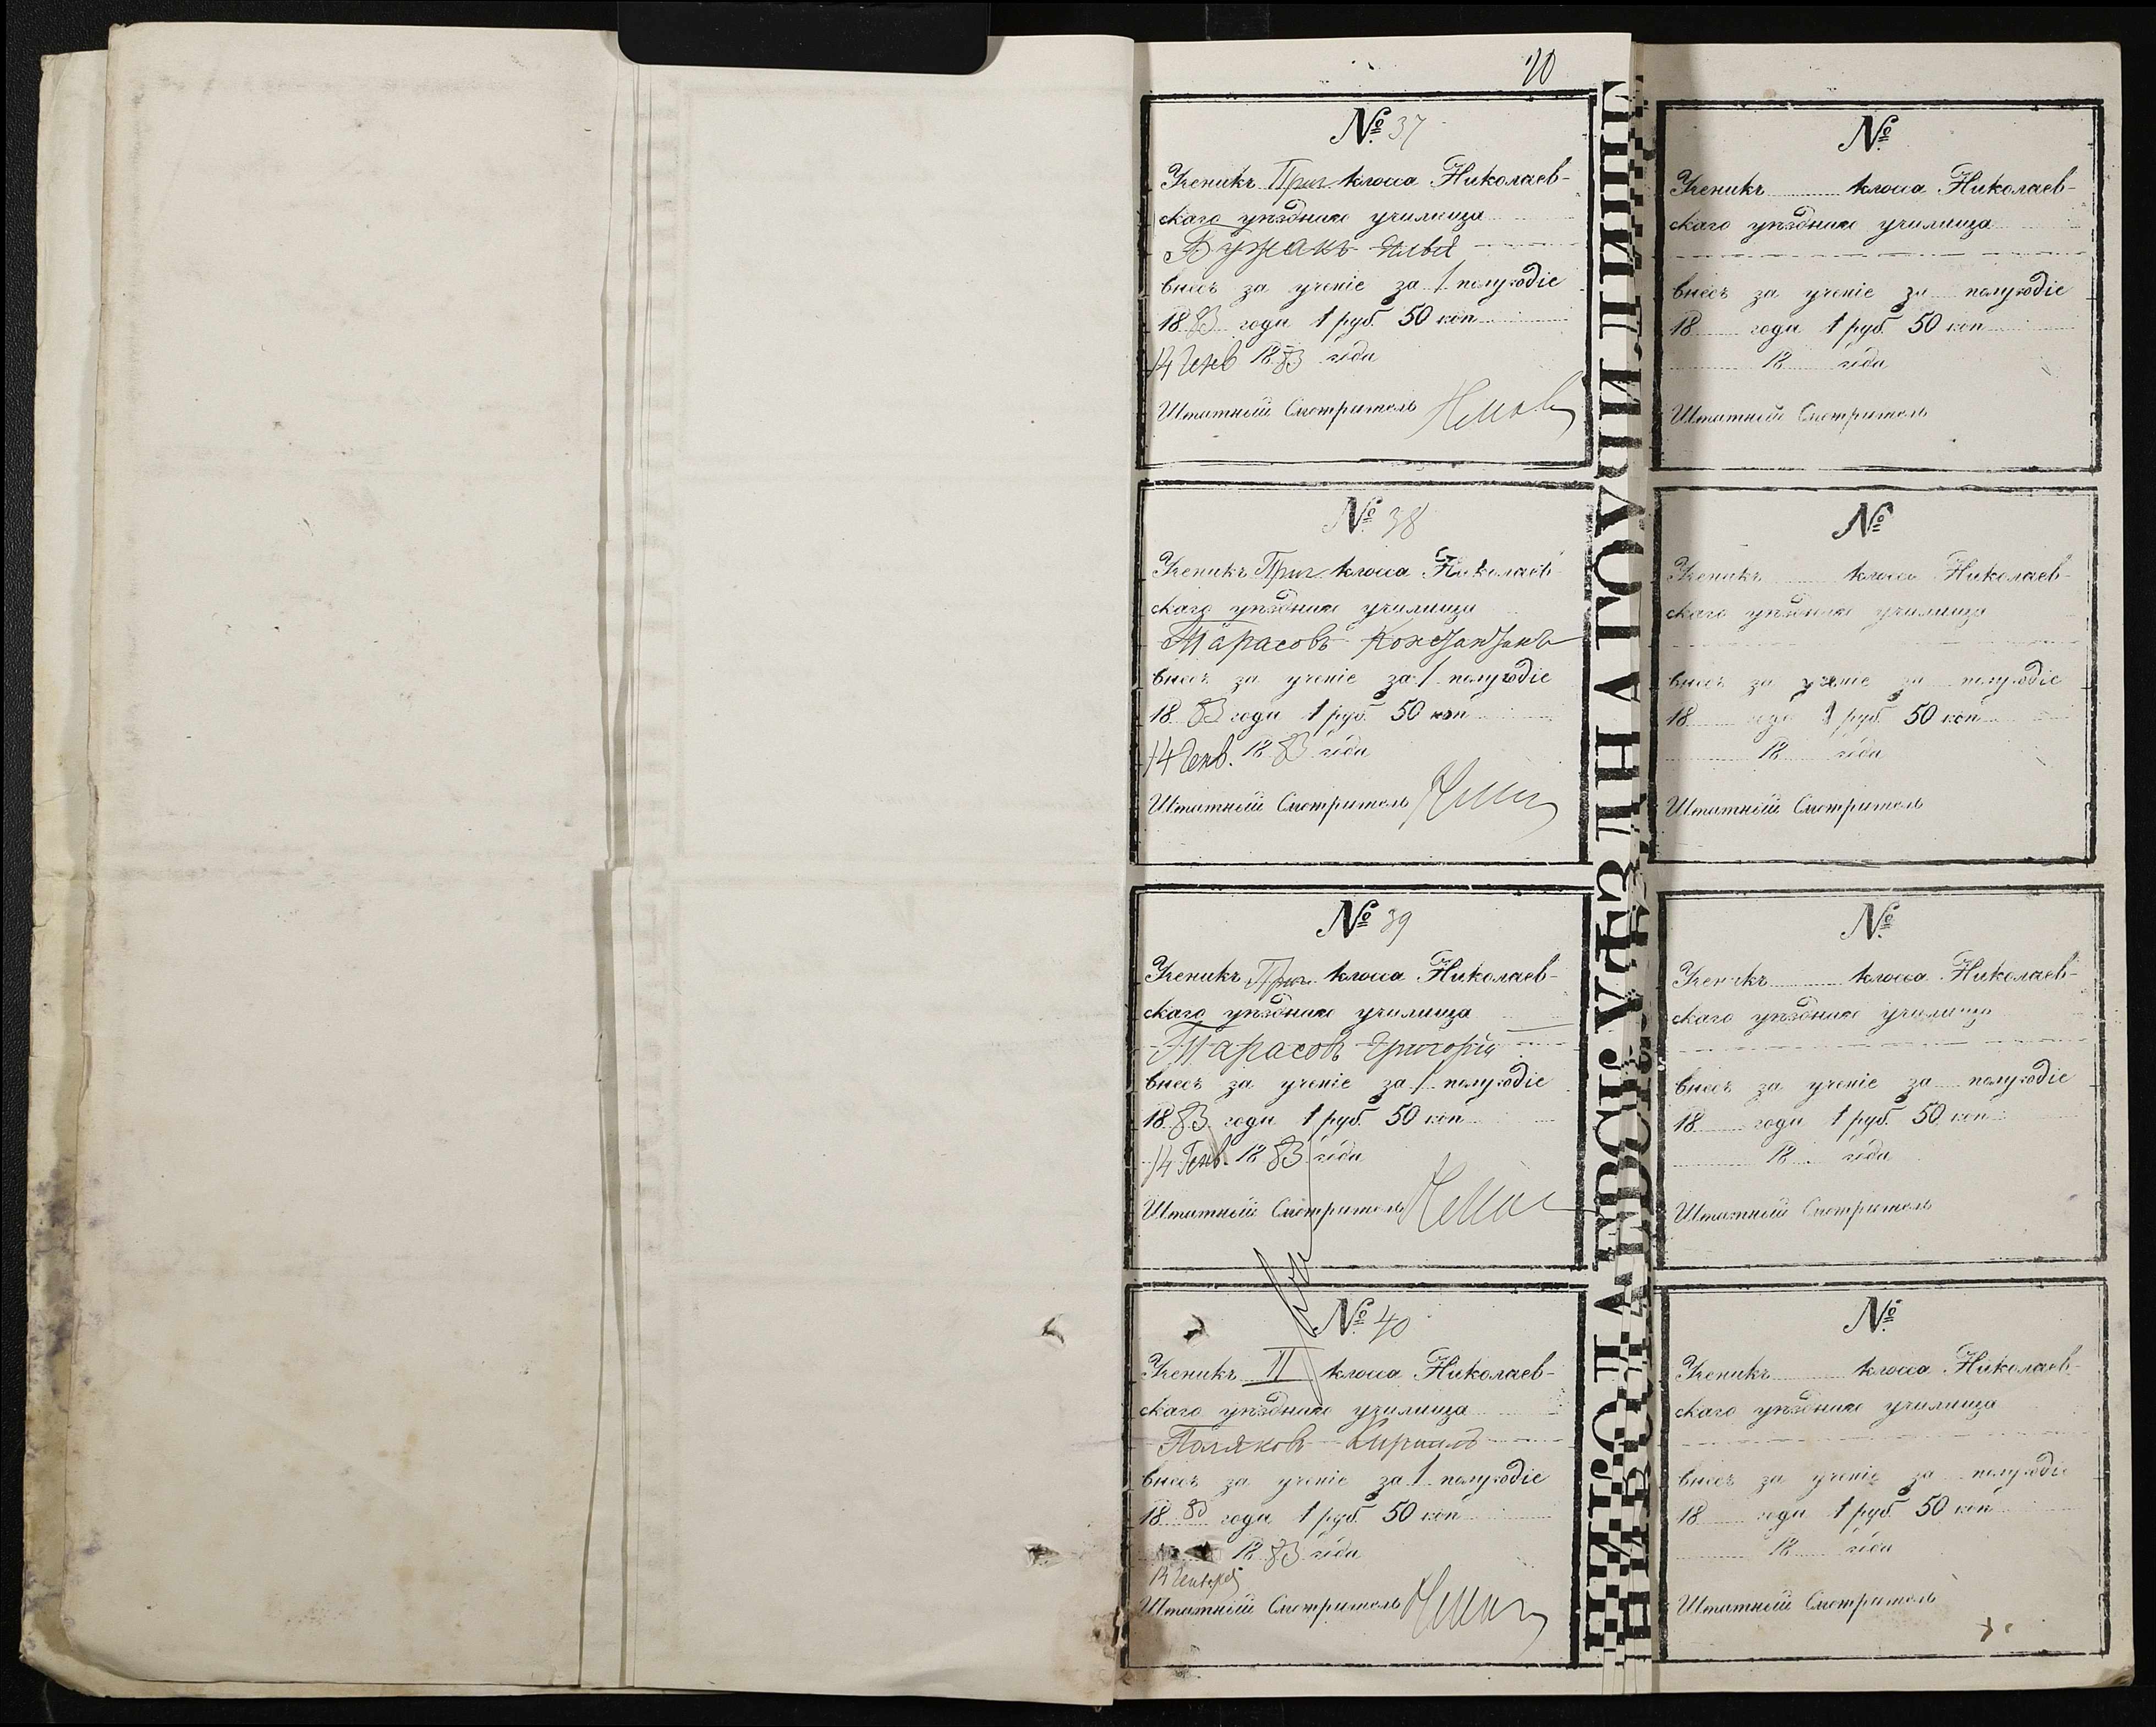 10
№ 37
Ученикъ Приг. класса Николаев-
скаго уѣзднаго училища
Бужакъ Илья
внесъ за ученіе за 1 полугодіе
1883 года 1 руб. 50 коп
14 Генв 1883 года
Штатный Смотритель
№ 38
Ученикъ Приг. класса Николаев-
скаго уѣзднаго училища
Тарасовъ Константинъ
внесъ за ученіе за 1 полугодіе
1883 года 1 руб. 50 коп
14 Генв. 1883 года
Штатный Смотритель
№ 39
Ученикъ Приг. класса Николаев-
скаго уѣзднаго училища
Тарасовъ Григорій
внесъ за ученіе за 1 полугодіе
1883 года 1 руб. 50 коп
14 Генв. 1883 года
Штатный Смотритель
№ 40
Ученикъ II класса Николаев-
скаго уѣзднаго училища
Поляковъ Кириллъ
внесъ за ученіе за 1 полугодіе
1883 года 1 руб. 50 коп
1883 года
Генваря
Штатный Смотритель
№
Ученикъ класса Николаев-
скаго уѣзднаго училища
внесъ за ученіе за полугодіе
18 года 1 руб. 50 коп
18 года
Штатный Смотритель
№
Ученикъ класса Николаев-
скаго уѣзднаго училища
внесъ за ученіе за полугодіе
18 года 1 руб. 50 коп
18 года
Штатный Смотритель
№
Ученикъ класса Николаев-
скаго уѣзднаго училища
внесъ за ученіе за полугодіе
18 года 1 руб. 50 коп
18 года
Штатный Смотритель
№
Ученикъ класса Николаев-
скаго уѣзднаго училища
внесъ за ученіе за полугодіе
18 года 1 руб. 50 коп
18 года
Штатный Смотритель